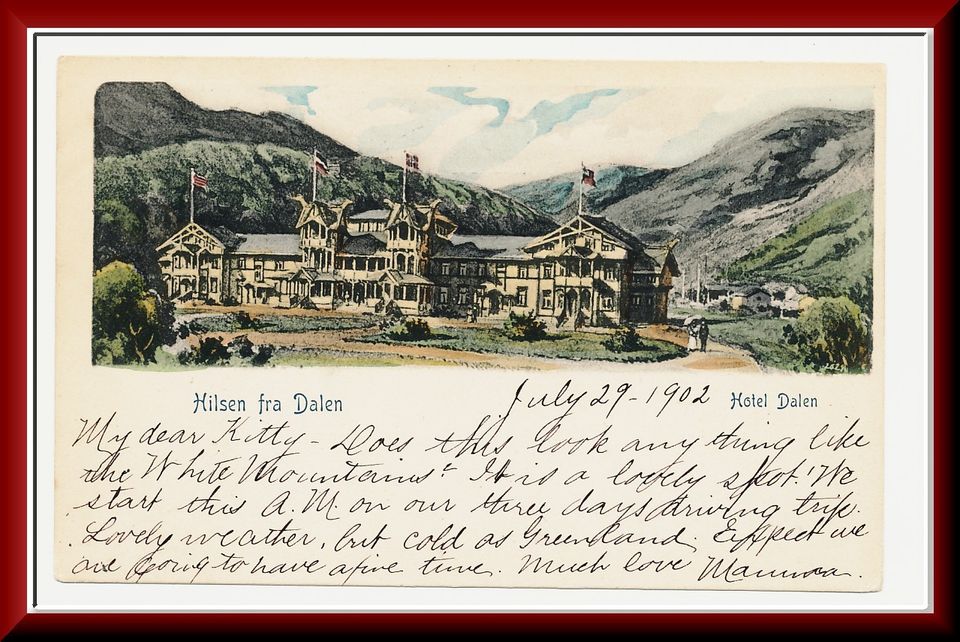 Hilsen fra Dalen
July 29 - 1902
Hotel Dalen
My dear Kitty - Does this look any thing like
the White Mountains? It is a lovely spot! We
start this A.M. on our three days driving trip.
Lovely weather, but cold as Greenland. Expect we
are going to have a fine time. Much love Mamma.